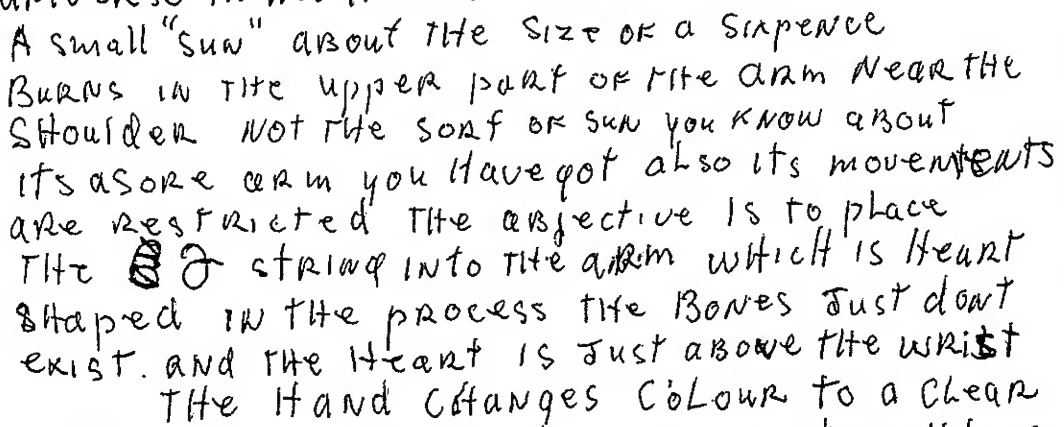 A small "sun" about THE Size OF a SixpeNce
BuRNS iN THE uppeR paRt OF THE aRm NeaR THE
SHoulDeR Not THE sort oF SuN you KNow about
it's a soRe aRm you Have got also its movements
aRe RestRicted THe obJective Is to place
THE stRiNg iNto THE aRm wHicH is HeaRt
sHaped iN tHe pRocess tHe BoNes Just doNt
exist. aNd THE HeaRt is Just above tHe wRist
THe HaNd CHaNges CoLouR to a CLeaR